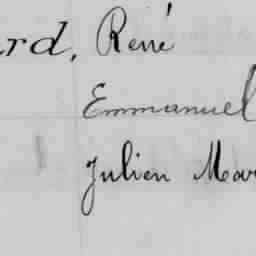 ard, René
Emmanuel
Julien Mar